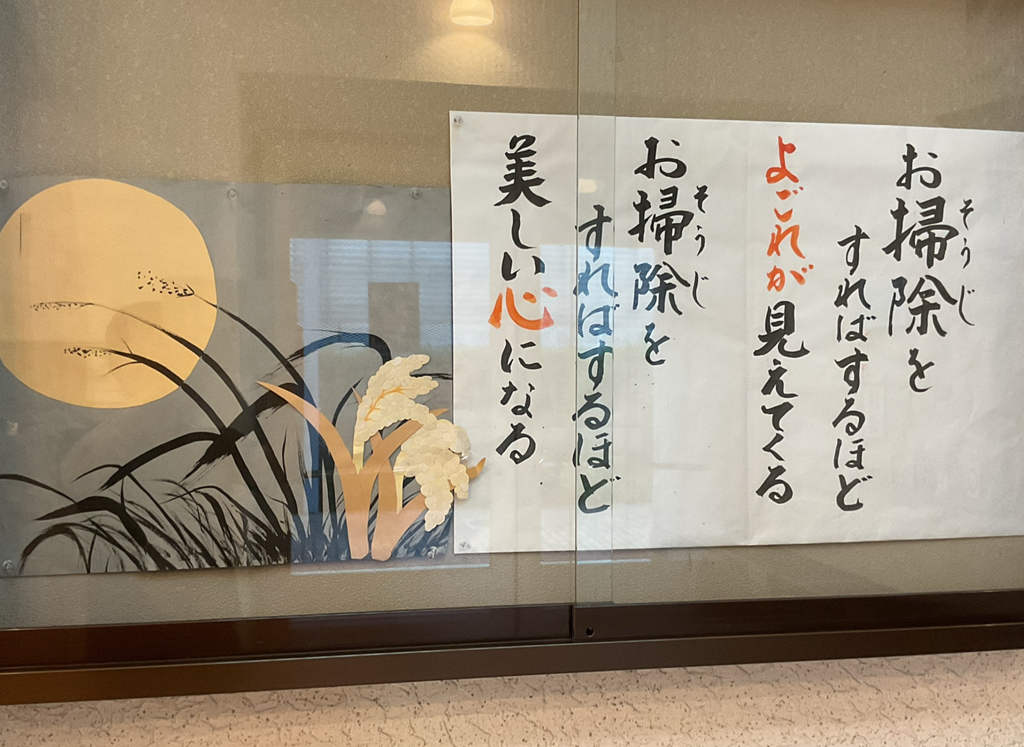 お掃除を
そうじ
すればするほど
よごれが見えてくる
お掃除を
そうじ
すればするほど
美しい心になる